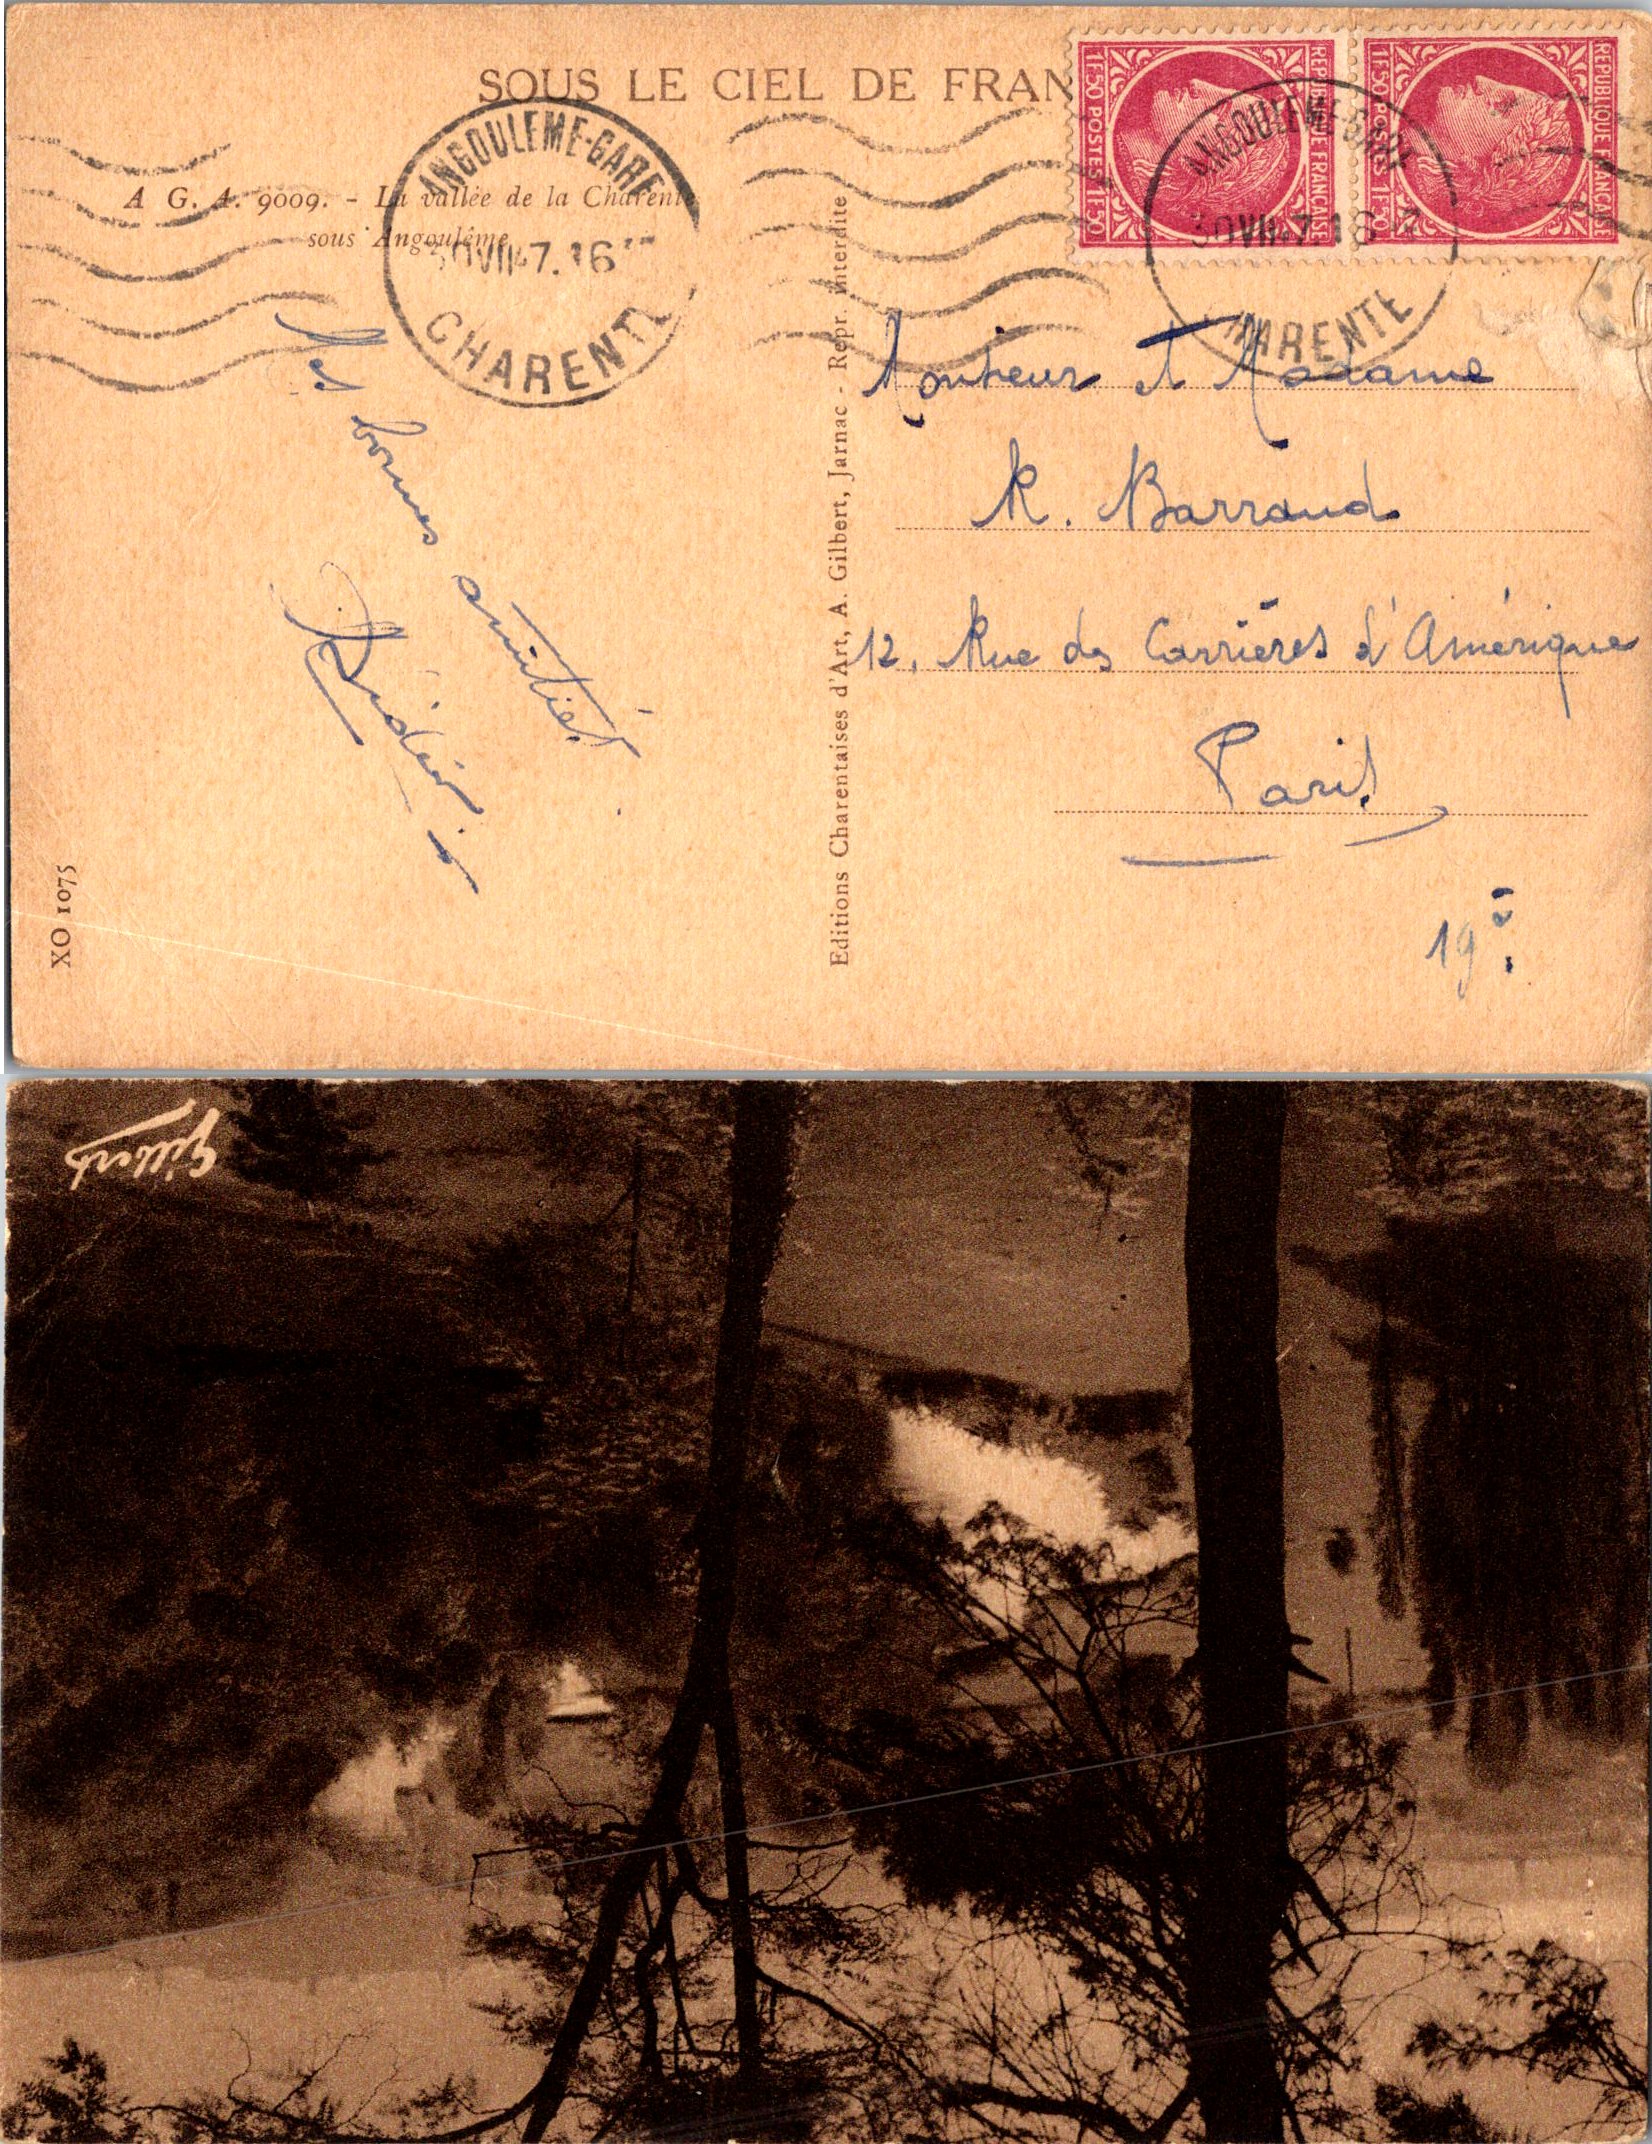 SOUS LE CIEL DE FRAN
A. G. A. 9009. - La vallée de la Charente
sous Angoulême
ANGOULEME-GARE
30 VII 47. 16
CHARENTE
REPUBLIQUE FRANÇAISE
1F50 POSTES 1F50
REPUBLIQUE FRANÇAISE
1F50 POSTES 1F50
ANGOULEME-GARE
30 VII 47. 16
CHARENTE
Mes bonnes amitiés
Editions Charentaises d'Art, A. Gilbert, Jarnac - Repr. interdite
Monsieur et Madame
R. Barraud
12, Rue des Carrières d'Amérique
Paris
19è
XO 1075
Gilbert